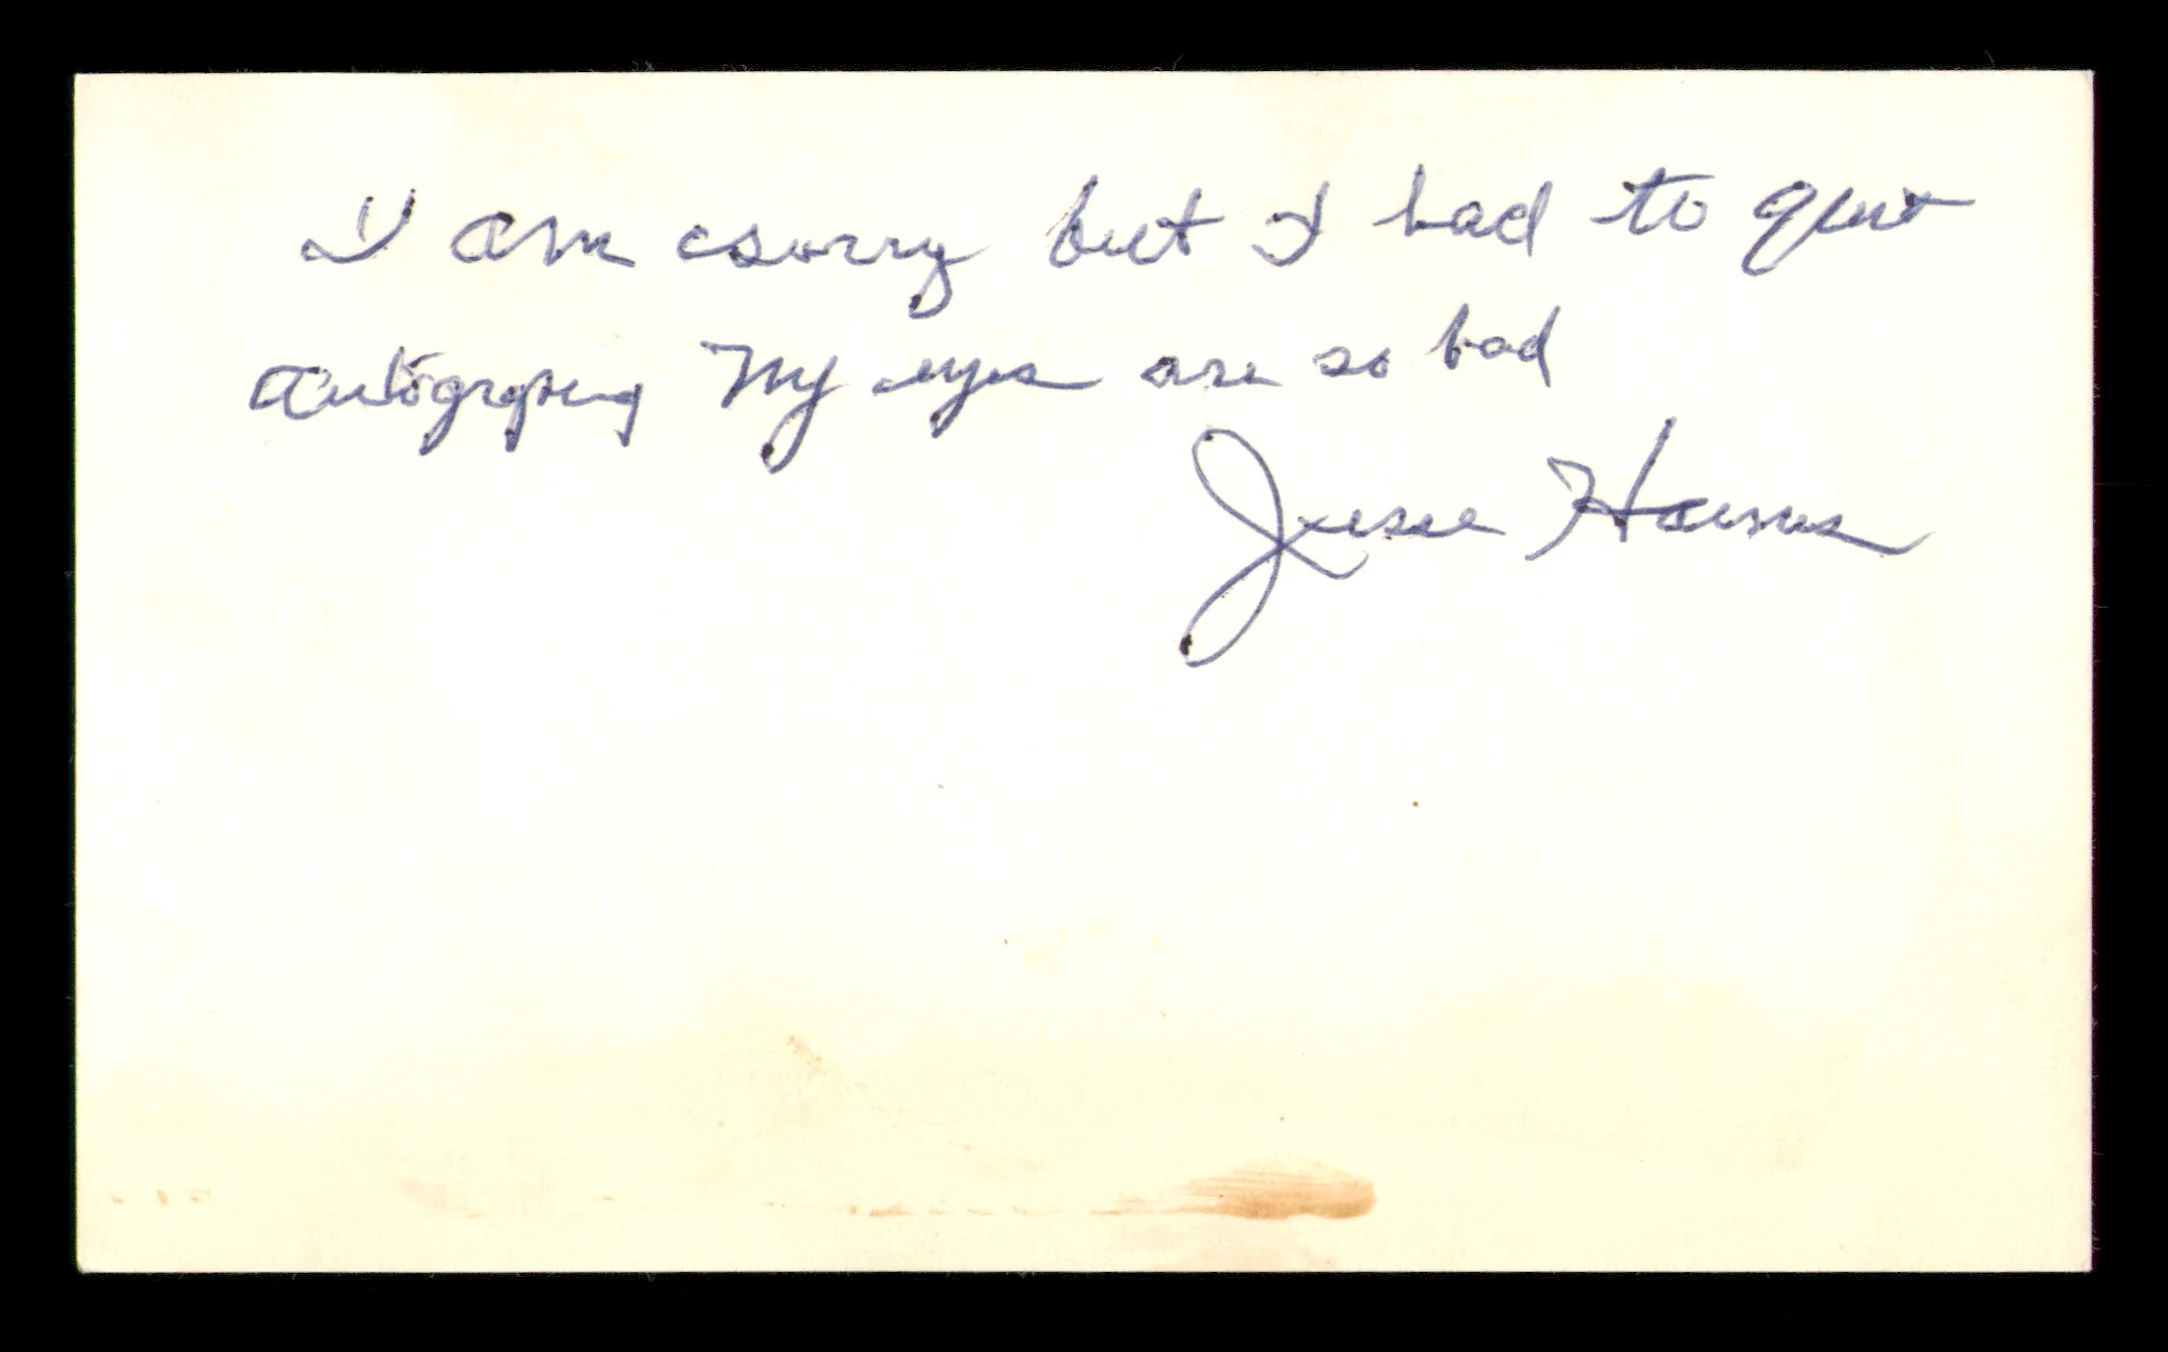 I am sorry but I had to quit
autograping My eyes are so bad
Jesse Haines